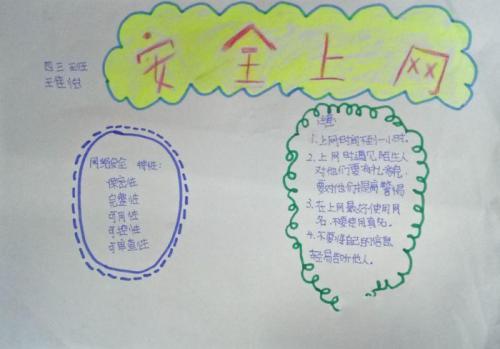 安全上网
四三班
王佳怡
网络安全 特性:
保密性
完整性
可用性
可控性
可审查性
注意:
1.上网时间不到一小时。
2.上网时遇见陌生人
对他们要有礼貌,
要对他们提高警惕
3.在上网最好使用网
名,不要使用真名。
4.不要将自己的信息
轻易告诉他人。